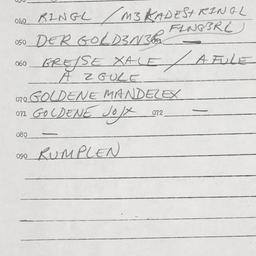 060 RINGL / M3 KADEST RINGL
050 DER GOLD3N3R FLNG3RL
060 GREISE XALE / A FULE
A 2 GULE
070 GOLDENE MANDELEX
072 GOLDENE JOJX 072 —
080 —
090 RUMPLEN